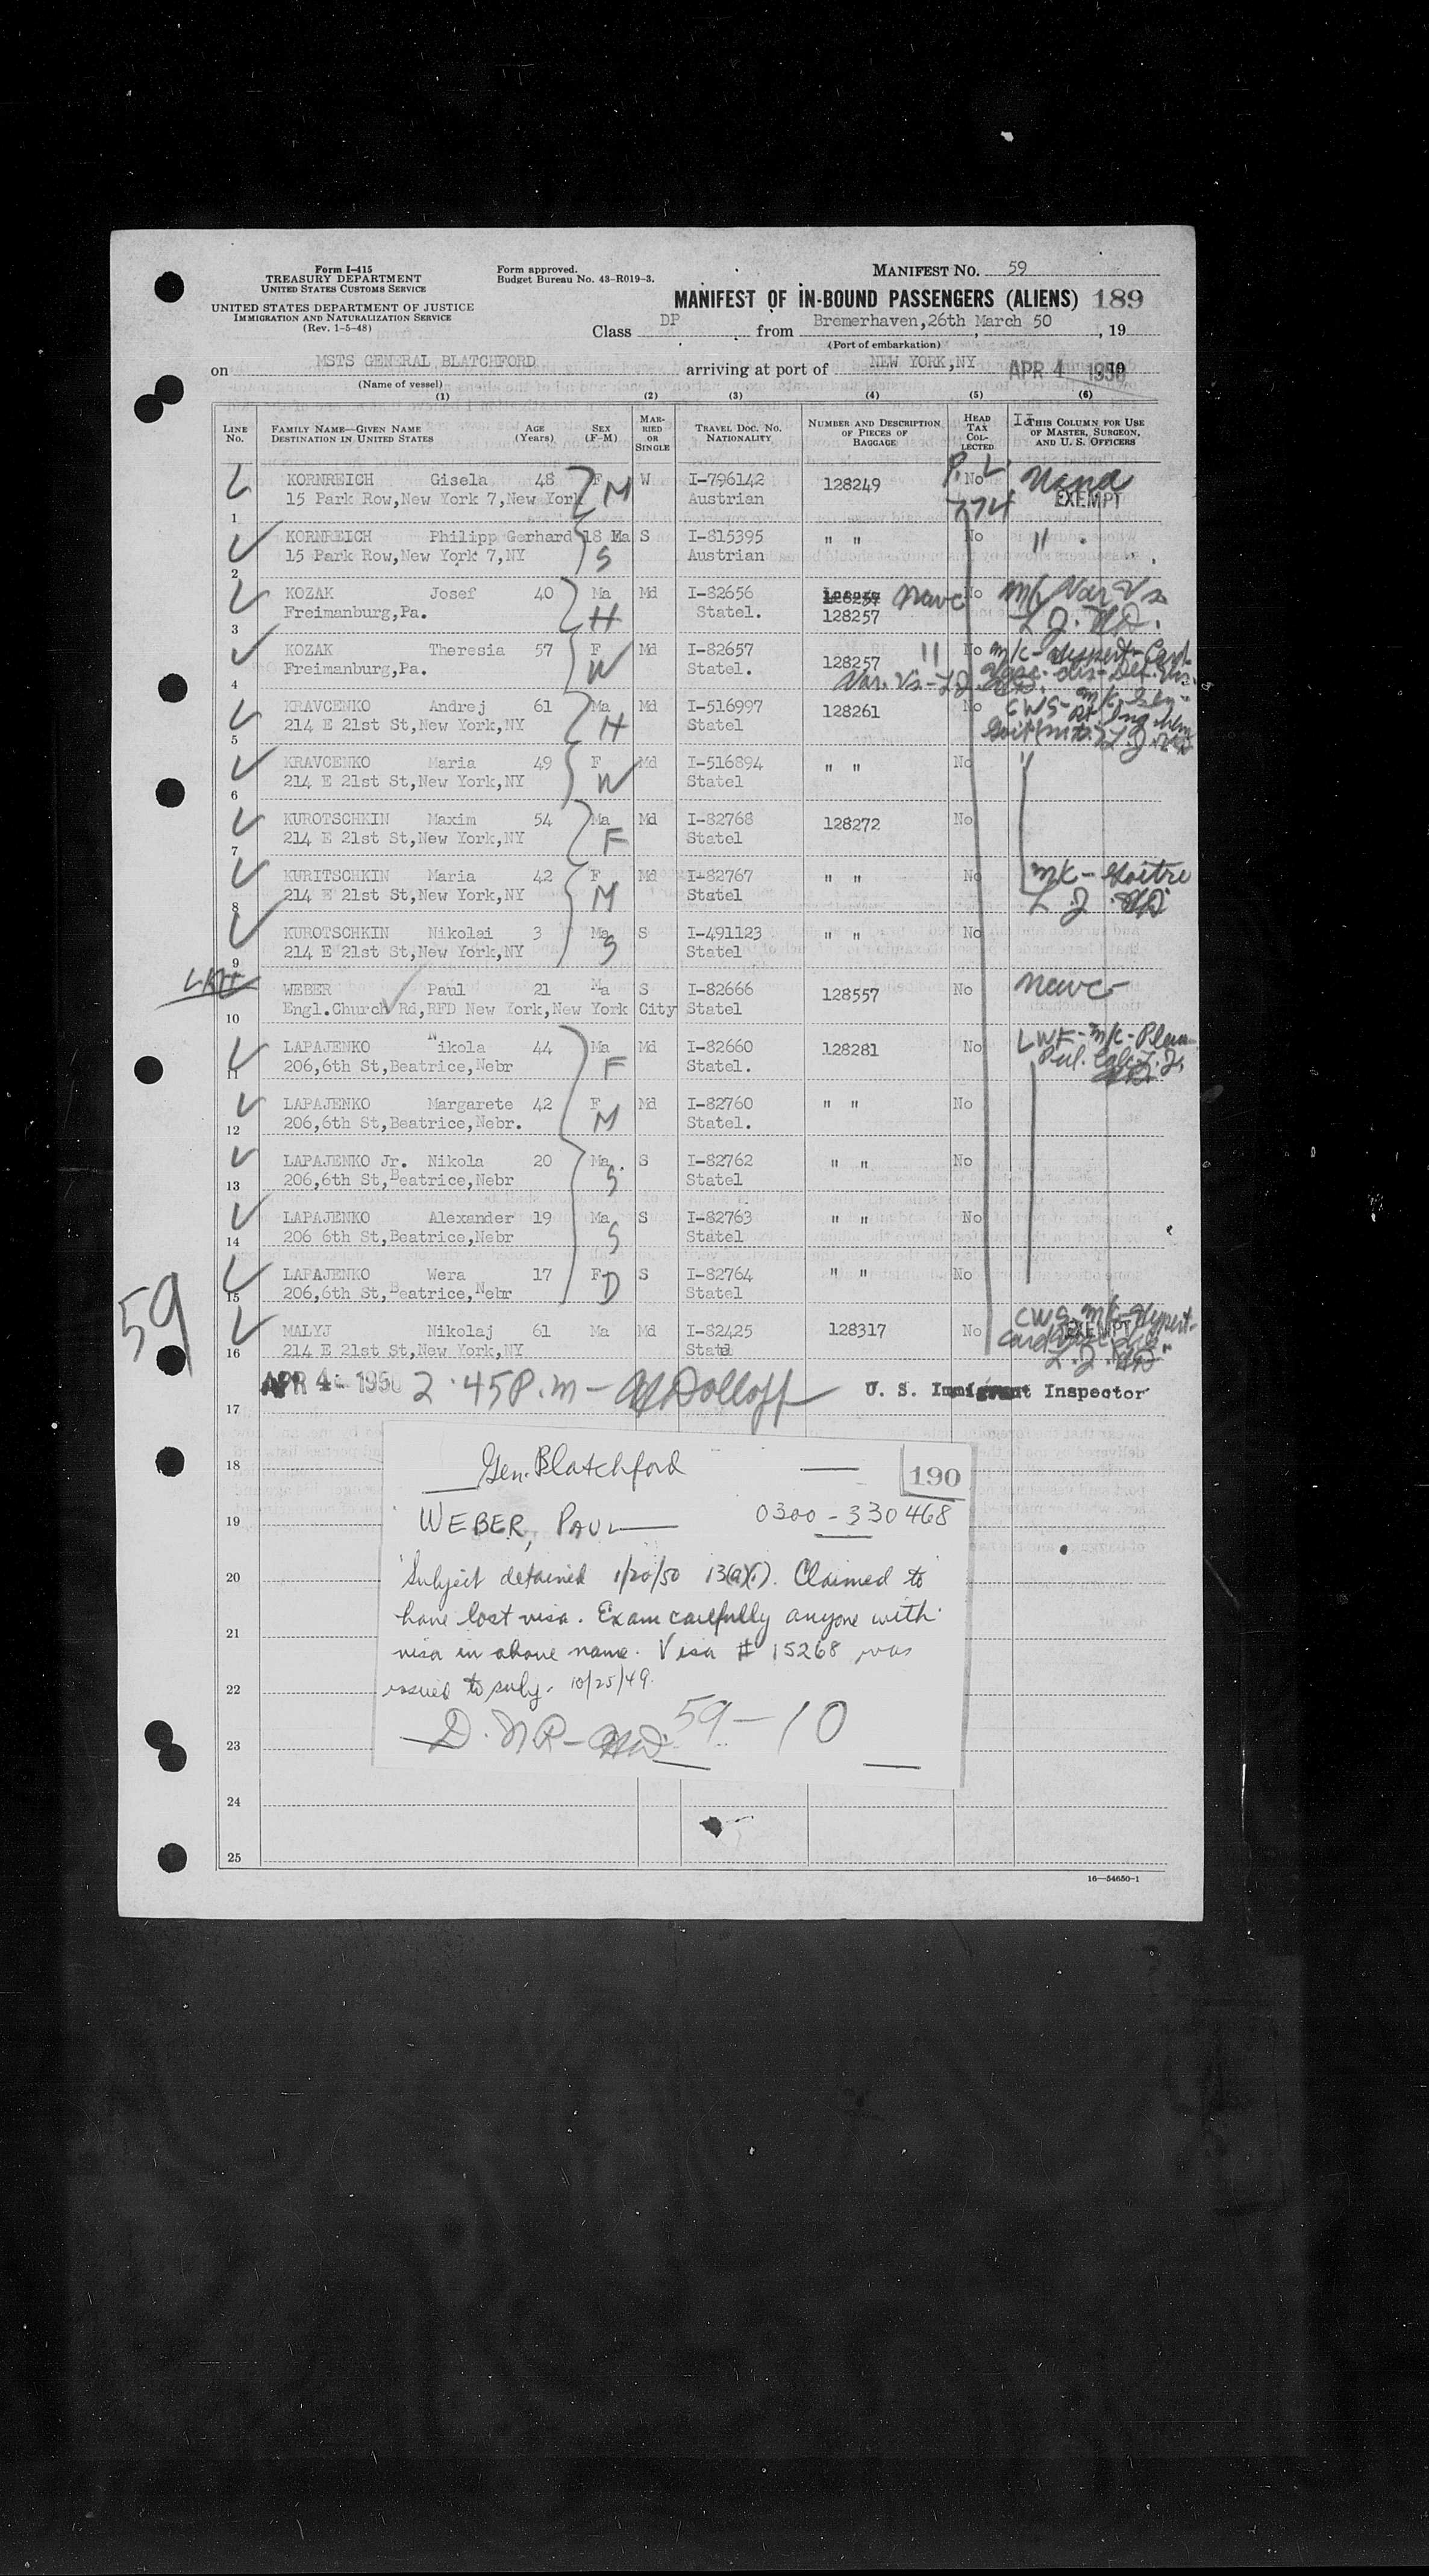 Form I-415
TREASURY DEPARTMENT
UNITED STATES CUSTOMS SERVICE
UNITED STATES DEPARTMENT OF JUSTICE
IMMIGRATION AND NATURALIZATION SERVICE
(Rev. 1-5-48)
Form approved.
Budget Bureau No. 43-R019-3.
MANIFEST NO. 59
MANIFEST OF IN-BOUND PASSENGERS (ALIENS) 189
Class DP from Bremerhaven,26th March 50, 19
(Port of embarkation)
on MSTS GENERAL BLATCHFORD arriving at port of NEW YORK,NY APR 4 1950, 19
(Name of vessel)
(1) (2) (3) (4) (5) (6)
LINE No. FAMILY NAME—GIVEN NAME DESTINATION IN UNITED STATES AGE (Years) SEX (F-M) MARRIED OR SINGLE TRAVEL DOC. NO. NATIONALITY NUMBER AND DESCRIPTION OF PIECES OF BAGGAGE HEAD TAX COLLECTED THIS COLUMN FOR USE OF MASTER, SURGEON, AND U. S. OFFICERS
P.L. 774
1 KORNREICH Gisela 48 F M W I-796142 128249 No EXEMPT
15 Park Row,New York 7,New York Austrian
2 KORNREICH Philipp Gerhard 18 Ma S S I-815395 " " No "
15 Park Row,New York 7,NY Austrian
3 KOZAK Josef 40 Ma H Md I-82656 128257 No M/c Var Vs
Freimanburg,Pa. Statel. 128257
4 KOZAK Theresia 57 F W Md I-82657 128257 " No
Freimanburg,Pa. Statel.
5 KRAVCENKO Andrej 61 Ma H Md I-516997 128261 No
214 E 21st St,New York,NY Statel
6 KRAVCENKO Maria 49 F W Md I-516894 " " No
214 E 21st St,New York,NY Statel
7 KUROTSCHKIN Maxim 54 Ma F Md I-82768 128272 No
214 E 21st St,New York,NY Statel
8 KURITSCHKIN Maria 42 F M Md I-82767 " " No MK - Goitre
214 E 21st St,New York,NY Statel
9 KUROTSCHKIN Nikolai 3 Ma S S I-491123 " " No
214 E 21st St,New York,NY Statel
10 WEBER Paul 21 Ma S I-82666 128557 No
Engl.Church Rd,RFD New York,New York City Statel
11 LAPAJENKO Nikola 44 Ma F Md I-82660 128281 No
206,6th St,Beatrice,Nebr Statel.
12 LAPAJENKO Margarete 42 F M Md I-82760 " " No
206,6th St,Beatrice,Nebr. Statel.
13 LAPAJENKO Jr. Nikola 20 Ma S S I-82762 " " No
206,6th St,Beatrice,Nebr Statel
14 LAPAJENKO Alexander 19 Ma S S I-82763 " " No
206 6th St,Beatrice,Nebr Statel
15 LAPAJENKO Wera 17 F D S I-82764 " " No
206,6th St,Beatrice,Nebr Statel
59
16 MALYJ Nikolaj 61 Ma Md I-82425 128317 No
214 E 21st St,New York,NY Statel
APR 4 - 1950 2.45 P.m - Dolloff U. S. Immigrant Inspector
17
18
19
20
21
22
23
24
25
Gen. Blatchford 190
WEBER, PAUL 0300 - 330468
Subject detained 1/20/50 13(a)(1). Claimed to
have lost visa. Exam carefully anyone with
visa in above name. Visa # 15268 was
issued to subj. 10/25/49.
59-10
16—54650-1